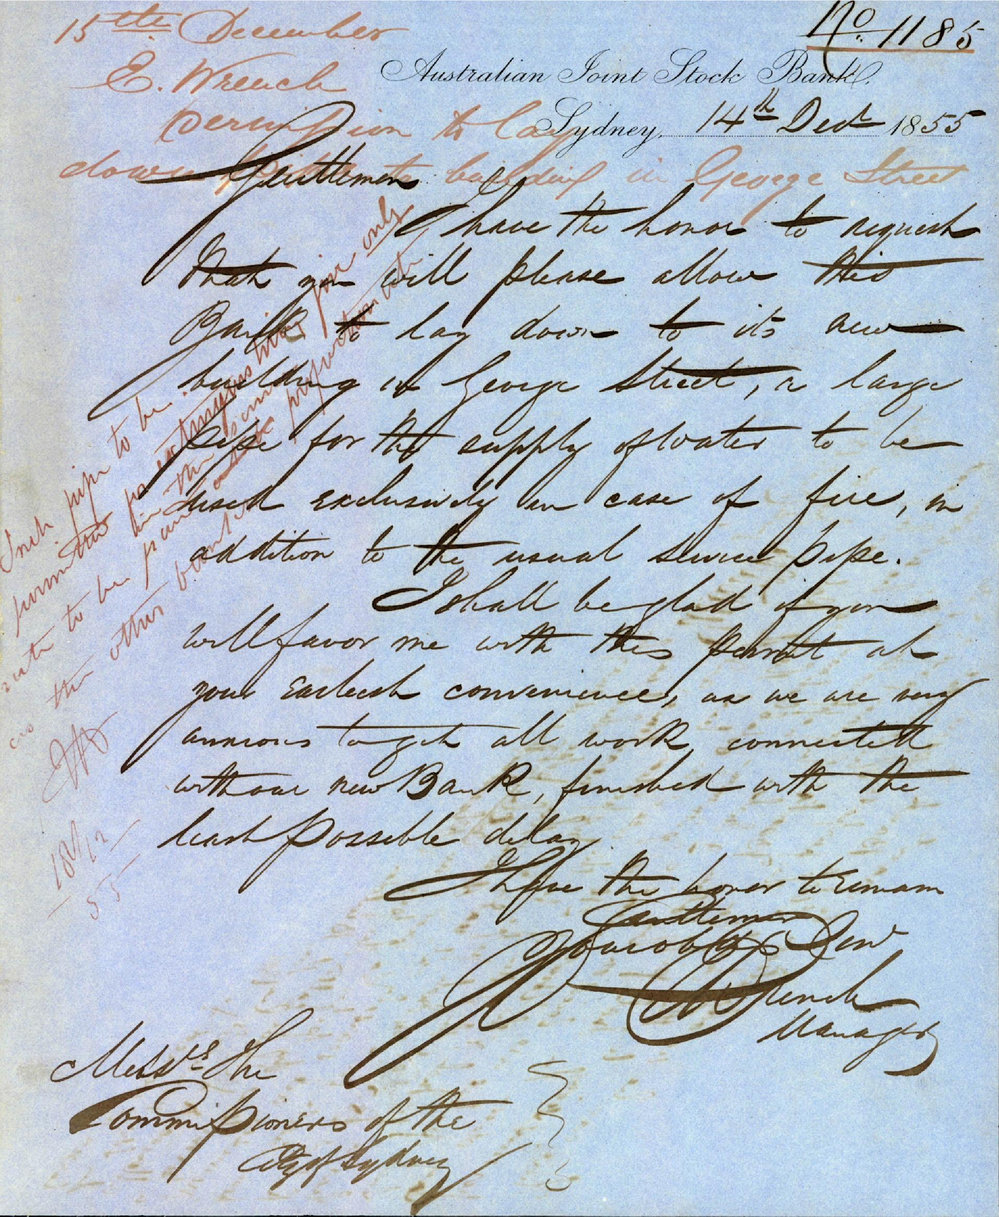 No. 1185
15th December
E. Wrench
Permission to lay
down pipe to building in George Street
Australian Joint Stock Bank,
Sydney, 14th Decr 1855
Gentlemen
I have the honor to request
that you will please allow this
Bank to lay down to its new
building in George Street, a large
pipe for the supply of water to be
used exclusively in case of fire, in
addition to the usual service pipe.
I shall be glad if you
will favor me with this permit at
your earliest convenience, as we are very
anxious to get all work, connected
with our new Bank, finished with the
least possible delay
I have the honor to remain
Gentlemen
Your obt Serv
Wrench
Manager
Messrs The
Commissioners of the
City of Sydney
Inch pipe to be
permitted fire only
rate to be paid in the same proportion
as the other banks
18/12
55